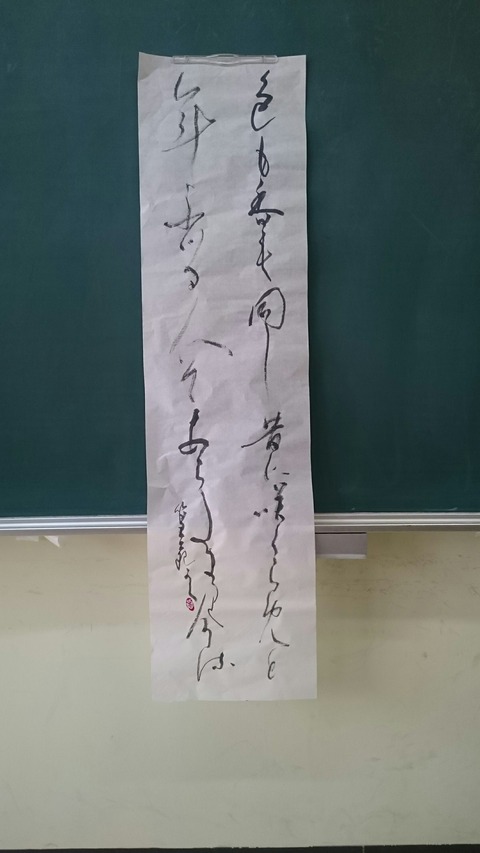 色も香も同し昔に咲くらめと
年ふる人そあらたまりける